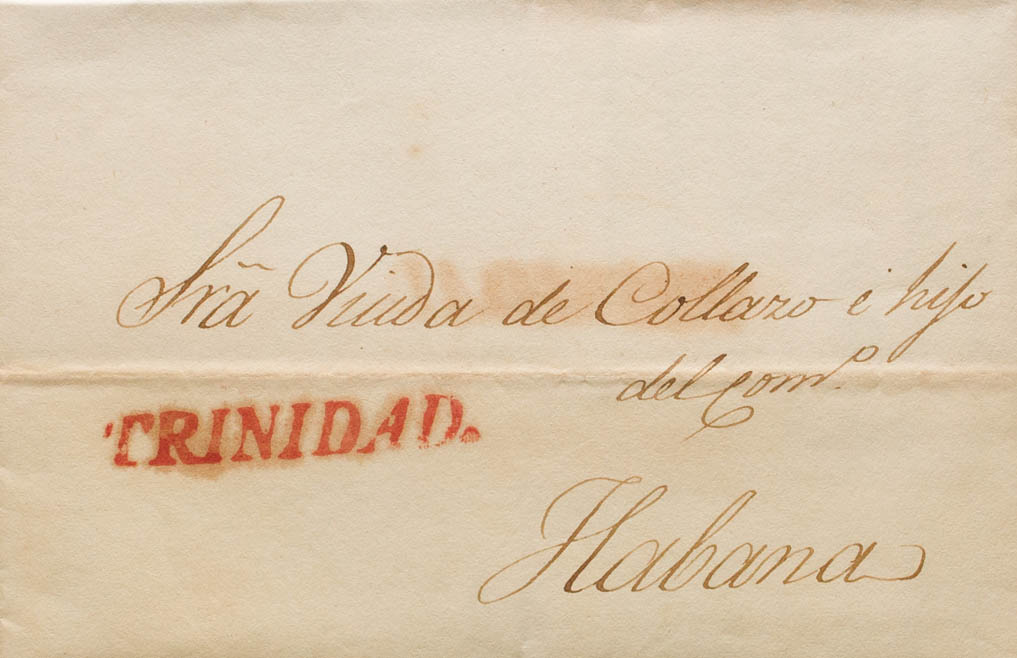 Srã Viuda de Collazo e hijo
del Comº.
TRINIDAD.
Habana